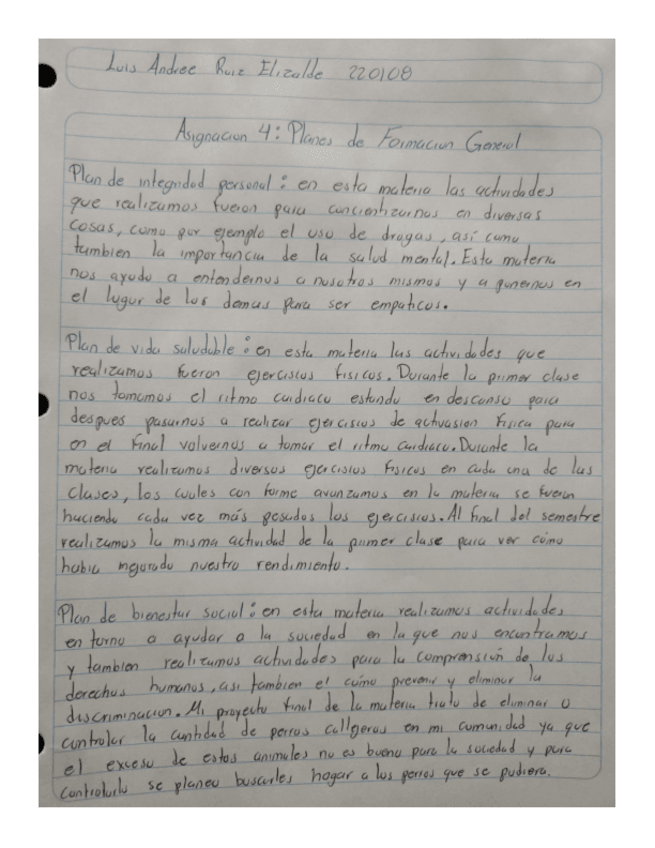 Luis Andree Ruiz Elizalde 220108
Asignacion 4: Planes de Formacion General
Plan de integridad personal: en esta materia las actividades
que realizamos fueron para concientizarnos en diversas
cosas, como por ejemplo el uso de drogas, así como
tambien la importancia de la salud mental. Esta materia
nos ayudo a entendernos a nosotros mismos y a ponernos en
el lugar de los demas para ser empaticos.
Plan de vida saludable: en esta materia las actividades que
realizamos fueron ejerciscos fisicos. Durante la primer clase
nos tomamos el ritmo cardiaco estando en descanso para
despues pasarnos a realizar ejercisios de activasion fisica para
en el final volvernos a tomar el ritmo cardiaco. Durante la
materia realizamos diversos ejercisios fisicos en cada una de las
clases, los cuales con forme avanzamos en la materia se fueron
haciendo cada vez más pesados los ejercisios. Al final del semestre
realizamos la misma actividad de la primer clase para ver cómo
habia mejorado nuestro rendimiento.
Plan de bienestar social: en esta materia realizamos actividades
en torno a ayudar a la sociedad en la que nos encontramos
y tambien realizamos actividades para la comprensión de los
derechos humanos, asi tambien el cómo prevenir y eliminar la
discriminacion. Mi proyecto final de la materia trato de eliminar o
controlar la cantidad de perros callgeros en mi comunidad ya que
el exceso de estos animales no es bueno para la sociedad y para
controlarlo se planeo buscarles hogar a los perros que se pudiera.